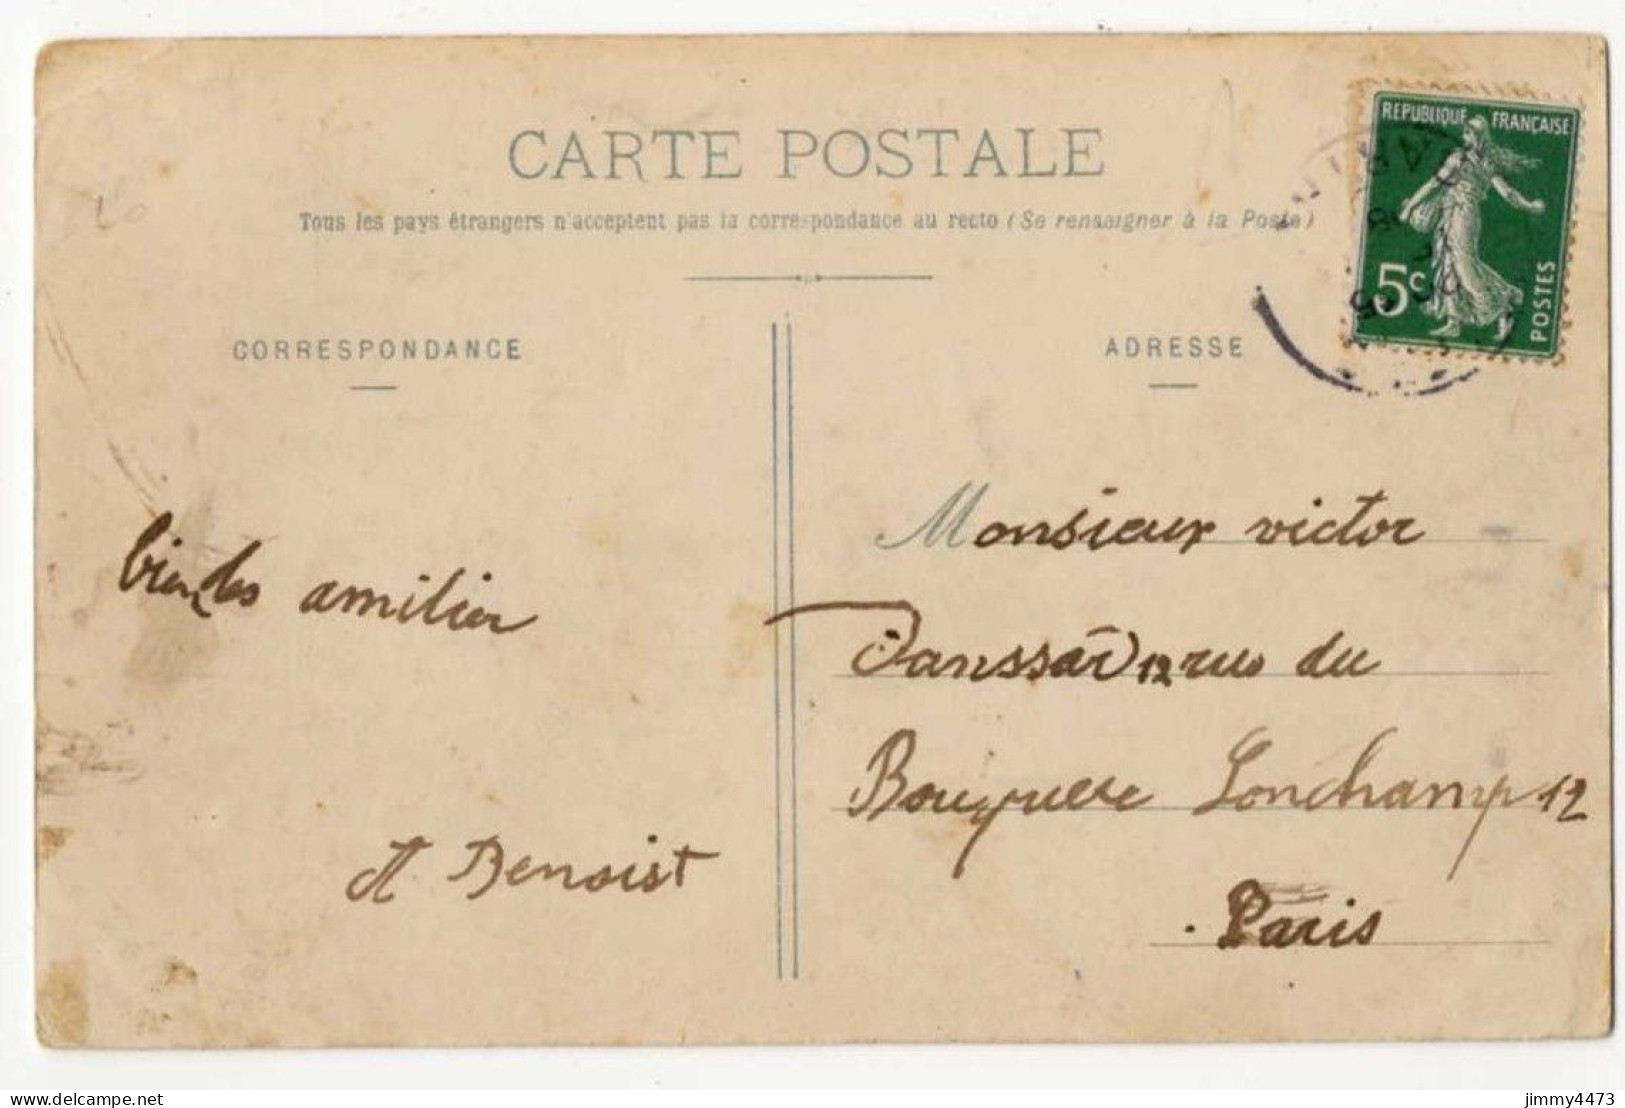 CARTE POSTALE
Tous les pays étrangers n'acceptent pas la correspondance au recto (Se renseigner à la Poste)
CORRESPONDANCE
ADRESSE
REPUBLIQUE FRANÇAISE
5c
POSTES
biendes amilier
A Benoist
Monsieur victor
12 rue du
Lonchamp 12
Paris
jimmy4473